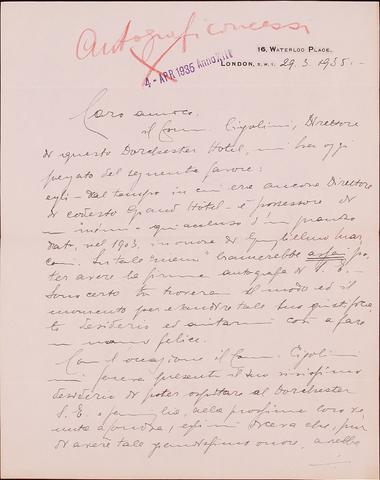 Autografi concessi
16, WATERLOO PLACE,
LONDON, S.W.1. 29.3.1935.-
4-APR 1935 Anno XIII
Caro amico,
il Comm. Cigolini, Direttore
di questo Dorchester Hotel, mi ha oggi
pregato del seguente favore:
egli - dal tempo in cui era ancora Direttore
di codesto Grand Hôtel - è possessore di
un menu - qui accluso d'un pranzo
dato, nel 1903, in onore di Guglielmo Mar
coni. Su tale menu bramerebbe assai po-
ter avere la firma autografa di
Sono certo tu troverai il modo ed il
momento per esaudire tale suo giustifica
to desiderio ed aiutarmi così a fare
un uomo felice.
Con l'occasione il Comm. Cigolini
mi faceva presente il suo vivissimo
desiderio di poter ospitare al Dorchester
S.E. e famiglia, nella prossima loro ve
nuta a Londra; egli mi diceva che, pur
di avere tale grandissimo onore,